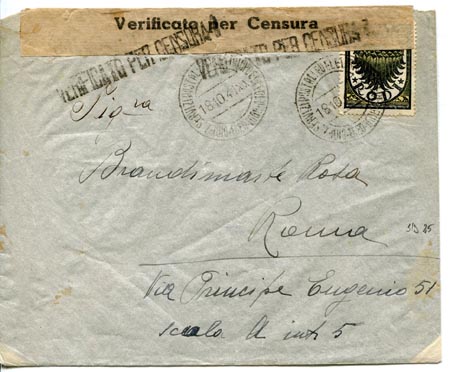 Verificato per Censura
VERIFICATO PER CENSURA
VERIFICATO PER CENSURA
Sig.ra
16.10.41
16.10
RODI
Brandimarte Rosa
Roma
Via Principe Eugenio 51
scala A int 5